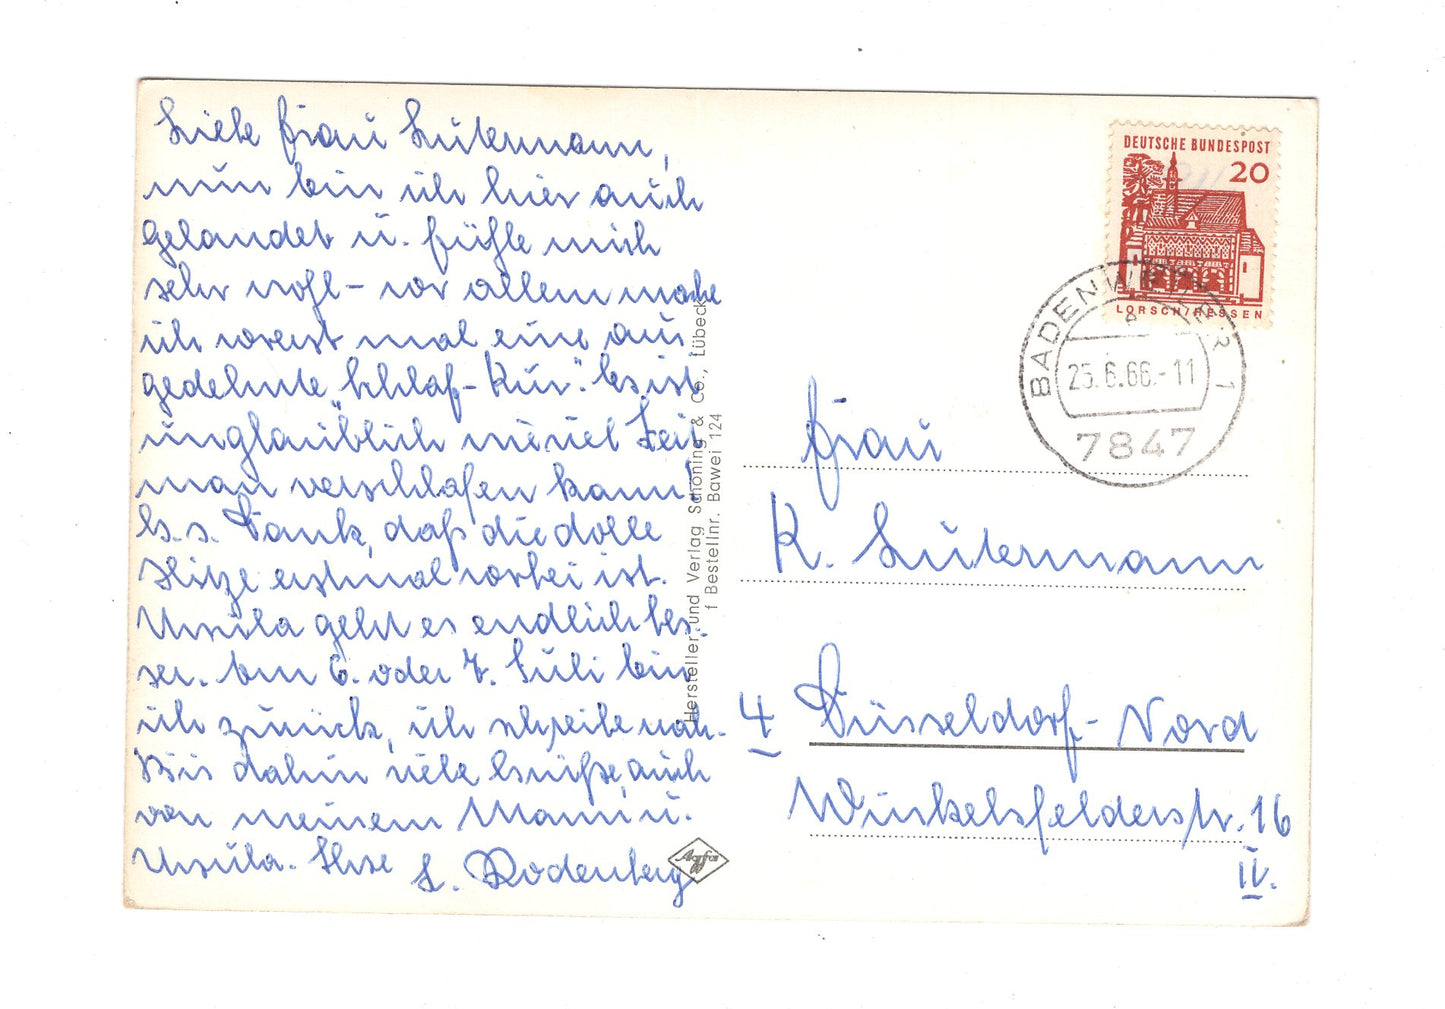 Liebe Frau Lutermann,
nun bin ich hier auch
gelandet u. fühle mich
sehr wohl - vor allem mache
ich vorerst mal eine aus
gedehnte „Schlaf-Kur". Es ist
unglaublich wieviel Zeit
man verschlafen kann!
G. s. Dank, daß die dolle
Hitze erstmal vorbei ist.
Ursula geht es endlich bes-
ser. Am 6. oder 7. Juli bin
ich zurück, ich schreibe noch.
Bis dahin viele Grüße, auch
von meinem Mann u.
Ursula. Ihre L. Rodenberg
Hersteller und Verlag Schöning & Co., Lübeck
f Bestellnr. Bawei 124
Agfa
DEUTSCHE BUNDESPOST
20
LORSCH/HESSEN
BADENWEILER 1
a
25.6.66.-11
7847
Frau
K. Lutermann
4 Düsseldorf-Nord
Winkelsfelderstr. 16
IV.